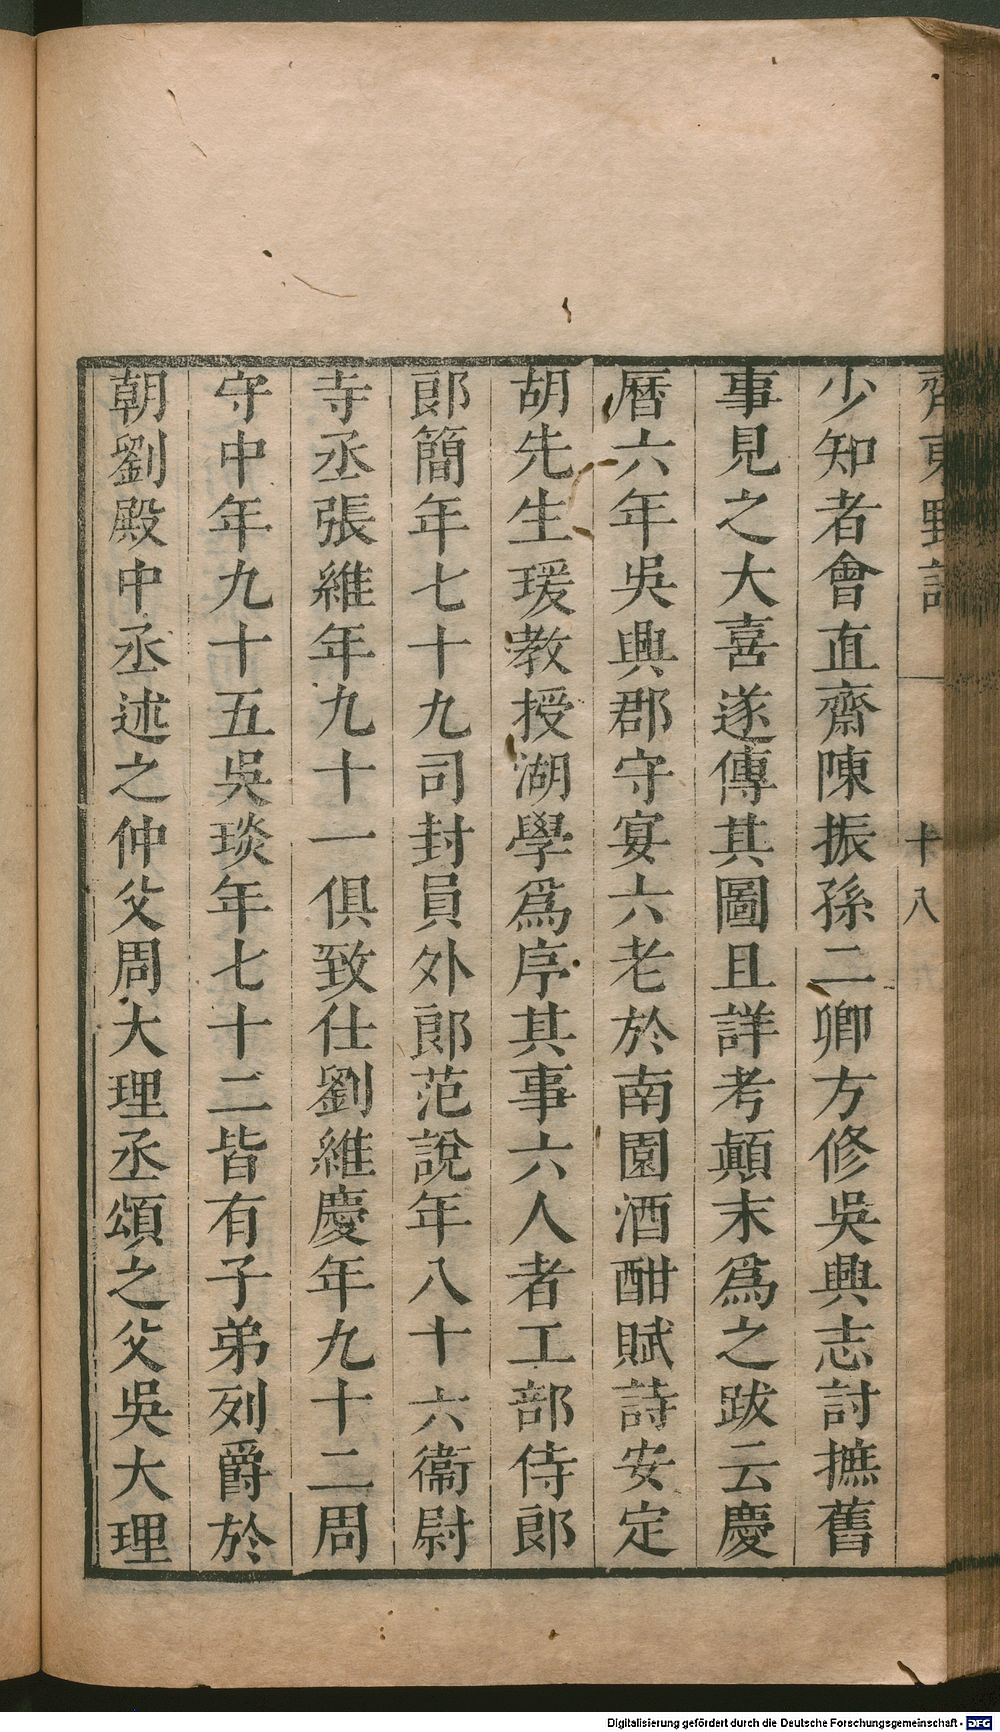 齊東野語
十八
少知者會直齋陳振孫二卿方修吳興志討摭舊
事見之大喜遂傳其圖且詳考顛末爲之跋云慶
曆六年吳興郡守宴六老於南園酒酣賦詩安定
胡先生瑗教授湖學爲序其事六人者工部侍郎
郎簡年七十九司封員外郎范說年八十六衞尉
寺丞張維年九十一俱致仕劉維慶年九十二周
守中年九十五吳琰年七十二皆有子弟列爵於
朝劉殿中丞述之仲父周大理丞頌之父吳大理
Digitalisierung gefördert durch die Deutsche Forschungsgemeinschaft - DFG